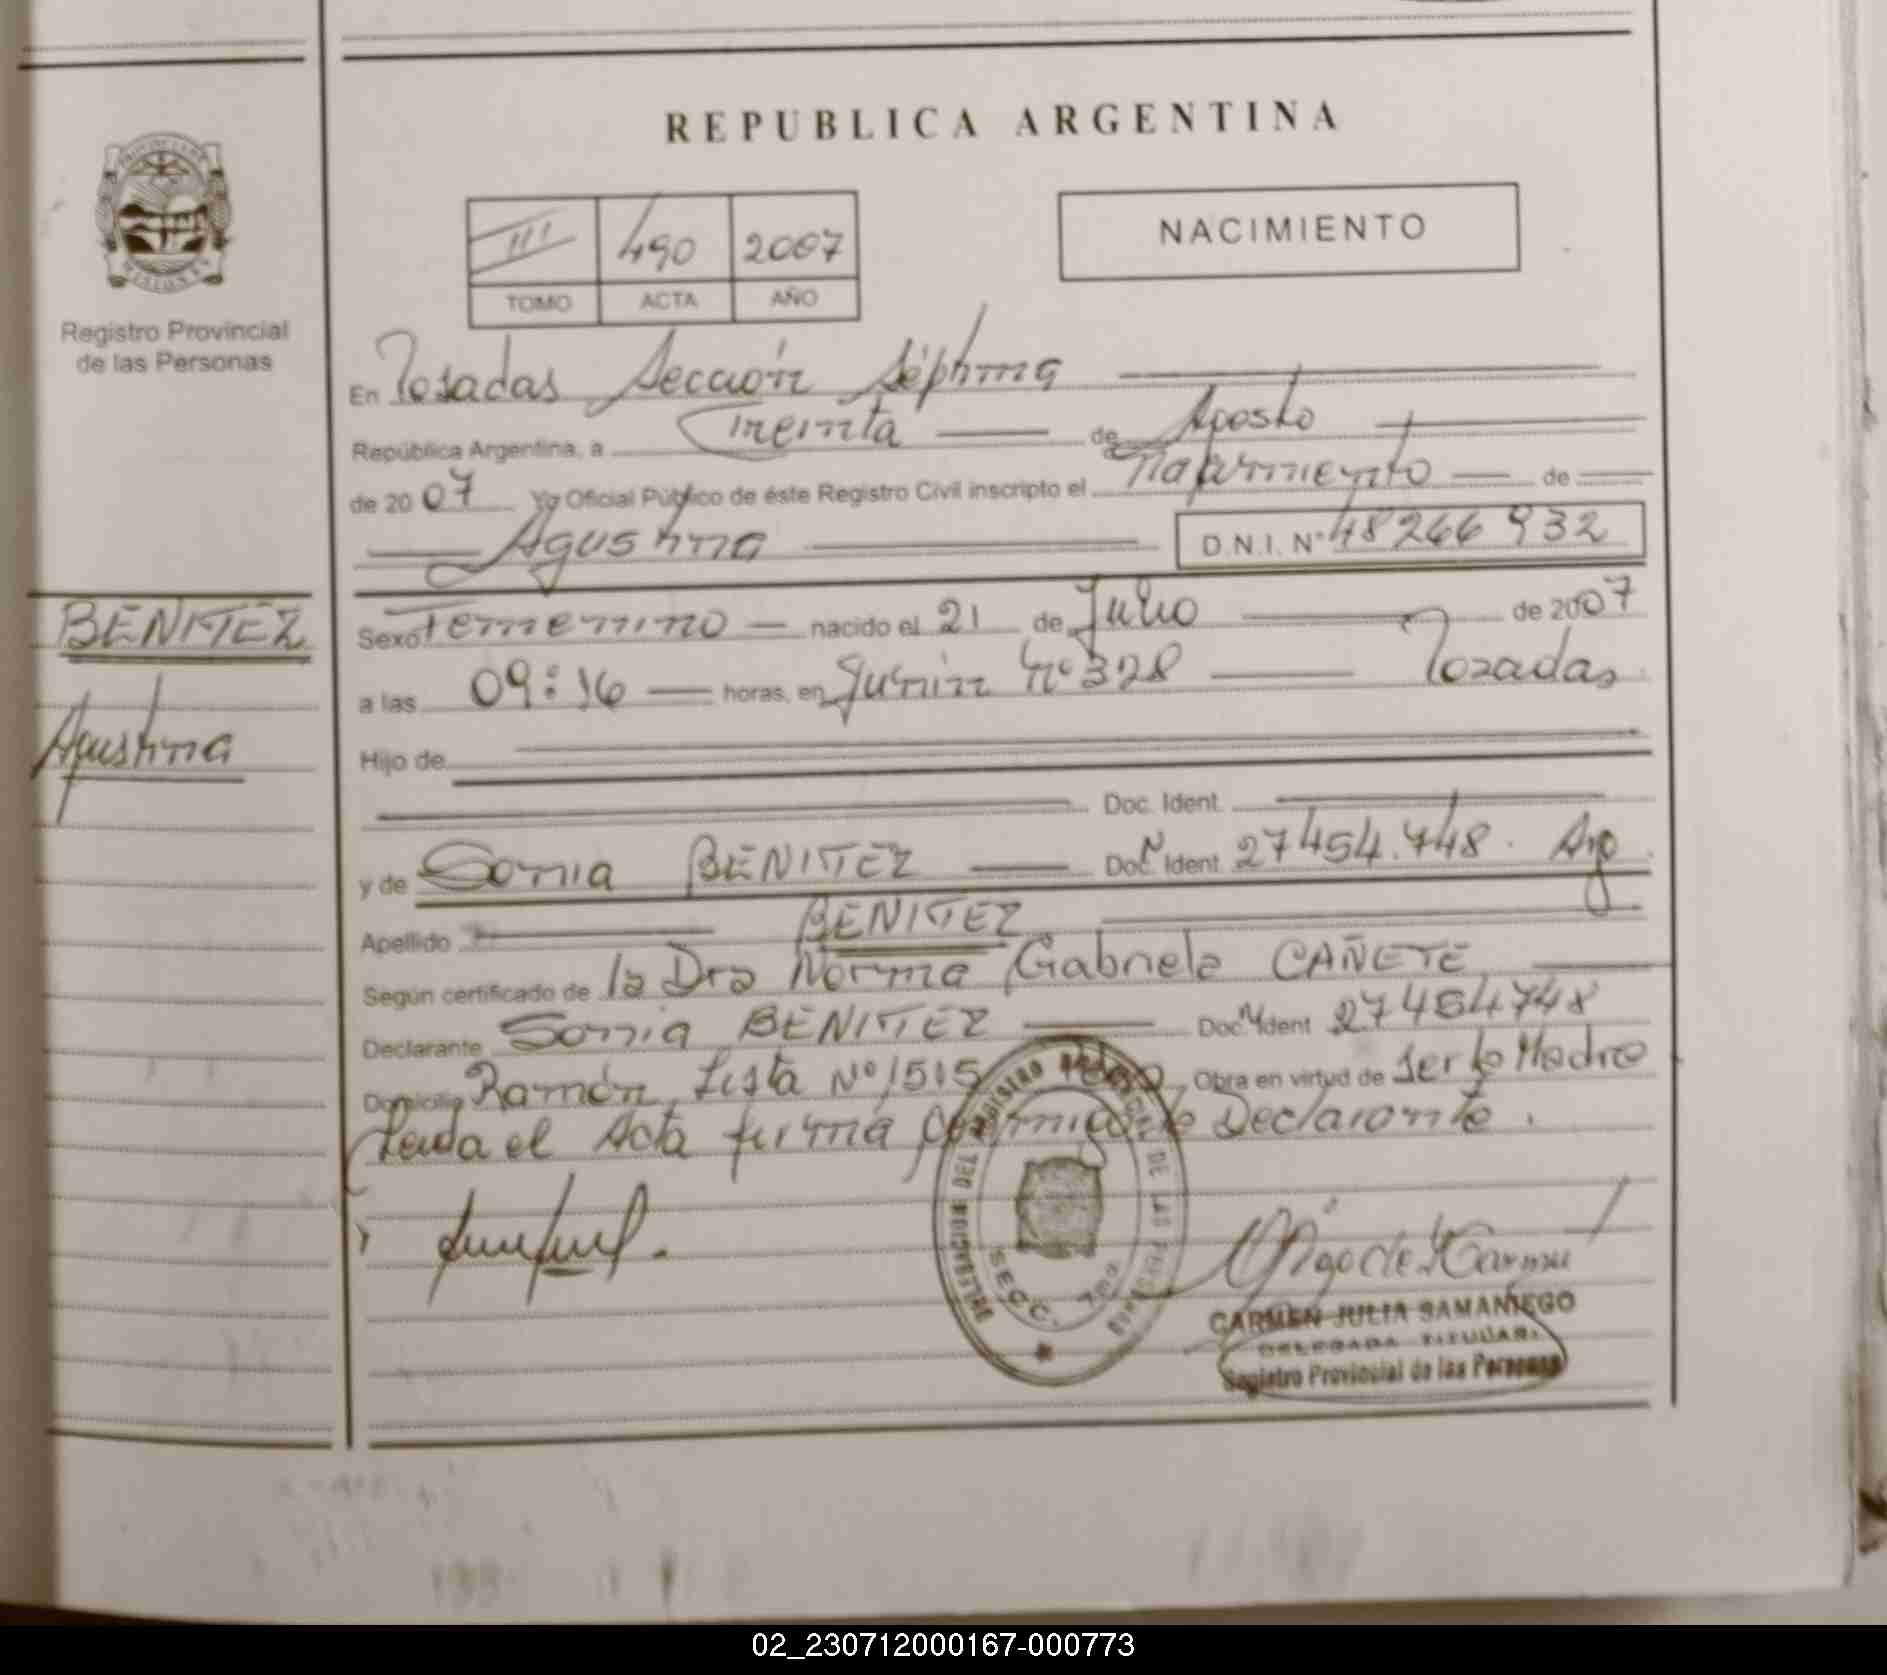 REPUBLICA ARGENTINA
III 490 2007
TOMO ACTA AÑO
NACIMIENTO
PROVINCIA DE
MISIONES
Registro Provincial
de las Personas
En Posadas Sección Séptima
República Argentina, a Treinta de Agosto
de 2007 Yo Oficial Público de éste Registro Civil inscripto el Nacimiento de
Agustina D.N.I. N° 48266932
BENITEZ
Agustina
Sexo Femenino nacido el 21 de Julio de 2007
a las 09:16 horas, en Junin Nº 328 Posadas
Hijo de
Doc. Ident.
y de Sonia BENITEZ Doc. N Ident. 27454.748. Arg
Apellido BENITEZ
Según certificado de la Dra Norma Gabriela CAÑETE
Declarante Sonia BENITEZ Doc. N Ident 27454748
Domicilio Ramón Lista Nº 1515 Obra en virtud de ser la Madre
Leida el Acta firma conmigo la Declarante.
REGISTRO PROVINCIAL DE LAS PERSONAS
SECC. 7ma
CARMEN JULIA SAMANIEGO
DELEGADA TITULAR
Registro Provincial de las Personas
02_230712000167-000773